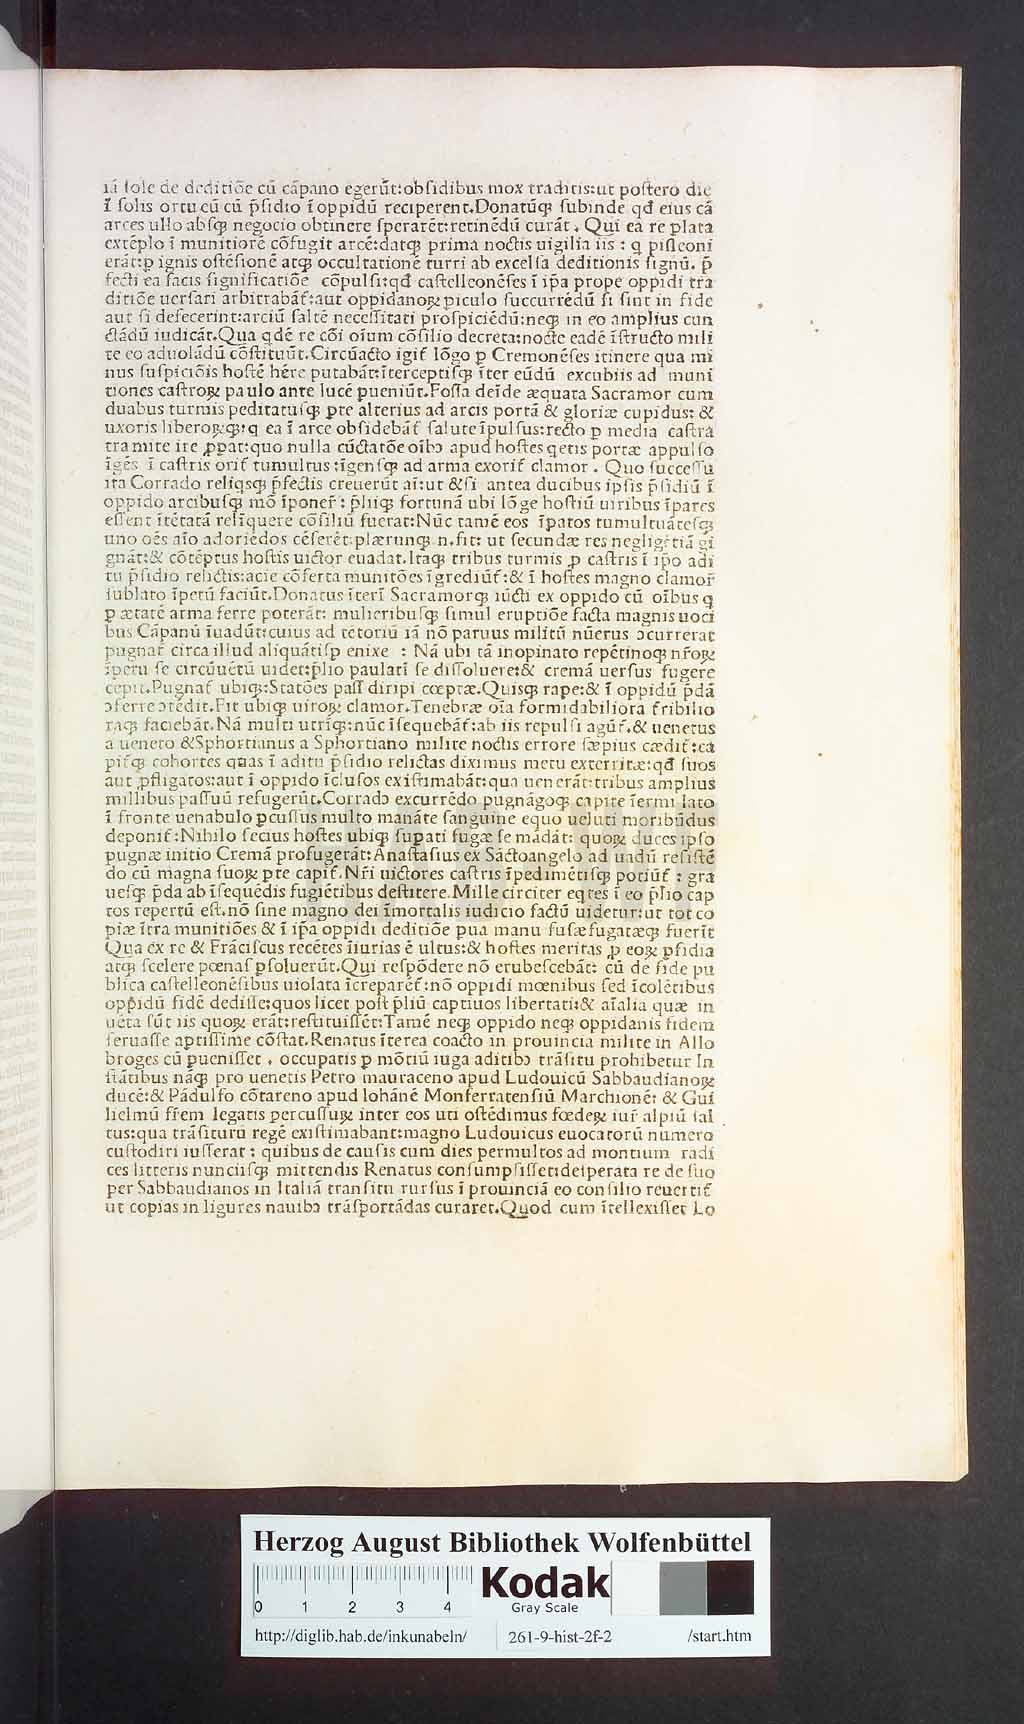 iã sole de deditiõe cũ cãpano egerũt:obsidibus mox traditis:ut postero die
ĩ solis ortu cũ cũ p̃sidio ĩ oppidũ reciperent.Donatũqꝫ subinde qđ eius cã
arces ullo absqꝫ negocio obtinere sperarẽt:retinẽdũ curãt. Qui ea re plata
extẽplo ĩ munitiorẽ cõfugit arcẽ:datqꝫ prima noctis uigilia iis : q pisleoni
erãt:ꝑ ignis ostẽsionẽ atqꝫ occultationẽ turri ab excelsa deditionis signũ. p̃
fecti ea facis significatiõe cõpulsi:qđ castelleonẽses ĩ ip̃a prope oppidi tra
ditiõe uersari arbitrabãt̃:aut oppidanoꝝ ꝑiculo succurrẽdũ si sint in fide
aut si defecerint:arciũ saltẽ necessitati prospiciẽdũ:neqꝫ in eo amplius cun
ctãdũ iudicãt.Qua qdẽ re cõi oĩum cõsilio decreta:nocte eadẽ ĩstructo mili
te eo aduolãdũ cõstituũt.Circũacto igit̃ lõgo ꝑ Cremonẽses itinere qua mi
nus suspiciõis hostẽ hẽre putabãt:ĩterceptisqꝫ ĩter eũdũ excubiis ad muni
tiones castroꝝ paulo ante lucẽ ꝑueniũt.Fossa deĩde æquata Sacramor cum
duabus turmis peditatusqꝫ ꝑte alterius ad arcis portã & gloriæ cupidus: &
uxoris liberoꝝqꝫ:q ea ĩ arce obsidebãt̃ salute ĩpulsus:recto ꝑ media castra
tramite ire ꝓpat:quo nulla cũctatõe oĩbꝯ apud hostes qetis portæ appulso
ĩgẽs ĩ castris orit̃ tumultus:ĩgensqꝫ ad arma exorit̃ clamor . Quo successu
ita Corrado reliqsqꝫ p̃fectis creuerũt aĩ:ut &si antea ducibus ipsis p̃sidiũ ĩ
oppido arcibusqꝫ mõ ĩponer̃ : p̃liiqꝫ fortunã ubi lõge hostiũ uiribus ĩpares
essent ĩtẽtatã relĩquere cõsiliũ fuerat:Nũc tamẽ eos ĩpatos tumultuãtesqꝫ
uno oẽs aĩo adoriẽdos cẽserẽt:plærunqꝫ .n.fit: ut secundæ res negligẽtiã gi
gnãt:& cõtẽptus hostis uictor euadat.Itaqꝫ tribus turmis ꝓ castris ĩ ip̃o adi
tu p̃sidio relictis:acie cõferta munitões ĩgrediũt̃:& ĩ hostes magno clamor̃
sublato ĩpetũ faciũt.Donatus iterĩ Sacramorqꝫ iũcti ex oppido cũ oĩbus q
ꝑ ætatẽ arma ferre poterãt: mulieribusqꝫ simul eruptiõe facta magnis uoci
bus Cãpanũ ĩuadũt:cuius ad tẽtoriũ iã nõ paruus militũ nũerus ɔcurrerat
pugnat̃ circa illud aliquãtisꝑ enixe : Nã ubi tã inopinato repẽtinoqꝫ nr̃oꝝ
ĩpetu se circũuẽtũ uidet:p̃lio paulati se dissoluere:& cremã uersus fugere
cepit.Pugnat̃ ubiqꝫ:Statões pass̃ diripi cœptæ.Quisqꝫ rape:& ĩ oppidũ p̃dã
ɔferre ɔtẽdit.Fit ubiqꝫ uiroꝝ clamor.Tenebræ oĩa formidabiliora t̃ribilio
raqꝫ faciebãt.Nã multi utrĩqꝫ:nũc ĩsequebãt̃:ab iis repulsi agũt̃.& uenetus
a ueneto &Sphortianus a Sphortiano milite noctis errore sæpius cædit̃:ea
pit̃qꝫ cohortes quas ĩ aditu p̃sidio relictas diximus metu exterritæ:qđ suos
aut ꝓfligatos:aut ĩ oppido ĩclusos existimabãt:qua uenerãt:tribus amplius
millibus passuũ refugerũt.Corrado excurrẽdo pugnãgoqꝫ capite ĩermi lato
ĩ fronte uenabulo ꝑcussus multo manãte sanguine equo ueluti moribũdus
deponit̃:Nihilo secius hostes ubiqꝫ supati fugæ se mãdãt: quoꝝ duces ipso
pugnæ initio Cremã profugerãt:Anastasius ex Sãctoangelo ad uadũ resistẽ
do cũ magna suoꝝ ꝑte capit̃.Nr̃i uictores castris ĩpedimẽtisqꝫ potiũt̃ : gra
uesqꝫ p̃da ab ĩsequẽdis fugiẽtibus destitere.Mille circiter eqtes ĩ eo p̃lio cap
tos repertũ est.nõ sine magno dei ĩmortalis iudicio factũ uidetur:ut tot co
piæ ĩtra munitiões & ĩ ip̃a oppidi deditiõe pua manu fusæfugatæqꝫ fuerĩt
Qua ex re & Frãciscus recẽtes ĩiurias ẽ ultus:& hostes meritas ꝓ eoꝝ ꝑfidia
atqꝫ scelere pœnas ꝑsoluerũt.Qui respõdere nõ erubescebãt: cũ de fide pu
blica castelleonẽsibus uiolata ĩcreparẽt̃:nõ oppidi mœnibus sed ĩcolẽtibus
oppidũ fidẽ dedisse:quos licet post p̃liũ captiuos libertati:& aĩalia quæ in
uẽta sũt iis quoꝝ erãt:restituissẽt:Tamẽ neqꝫ oppido neqꝫ oppidanis fidem
seruasse aptissime cõstat.Renatus ĩterea coacto in prouincia milite in Allo
broges cũ ꝑuenisset . occupatis ꝑ mõtiũ iuga aditibꝯ trãsitu prohibetur In
stãtibus nãqꝫ pro uenetis Petro mauraceno apud Ludouicũ Sabbaudianoꝝ
ducẽ:& Pãdulfo cõtareno apud Iohãnẽ Monferratensiũ Marchionẽ: & Gui
lielmũ fr̃em legatis percussuꝝ inter eos uti ostẽdimus fœdeꝝ iur̃ alpiũ sal
tus:qua trãsiturũ regẽ existimabant:magno Ludouicus euocatorũ numero
custodiri iusserat : quibus de causis cum dies permultos ad montium radi
ces litteris nunciisqꝫ mittendis Renatus consumpsisset:desperata re de suo
per Sabbaudianos in Italiã transitu rursus ĩ prouinciã eo consilio reuertit̃
ut copias in ligures nauibꝯ trãsportãdas curaret.Quod cum ĩtellexisset Lo
HAB WF
Herzog August Bibliothek Wolfenbüttel
0 1 2 3 4
Kodak
Gray Scale
http://diglib.hab.de/inkunabeln/ 261-9-hist-2f-2 /start.htm